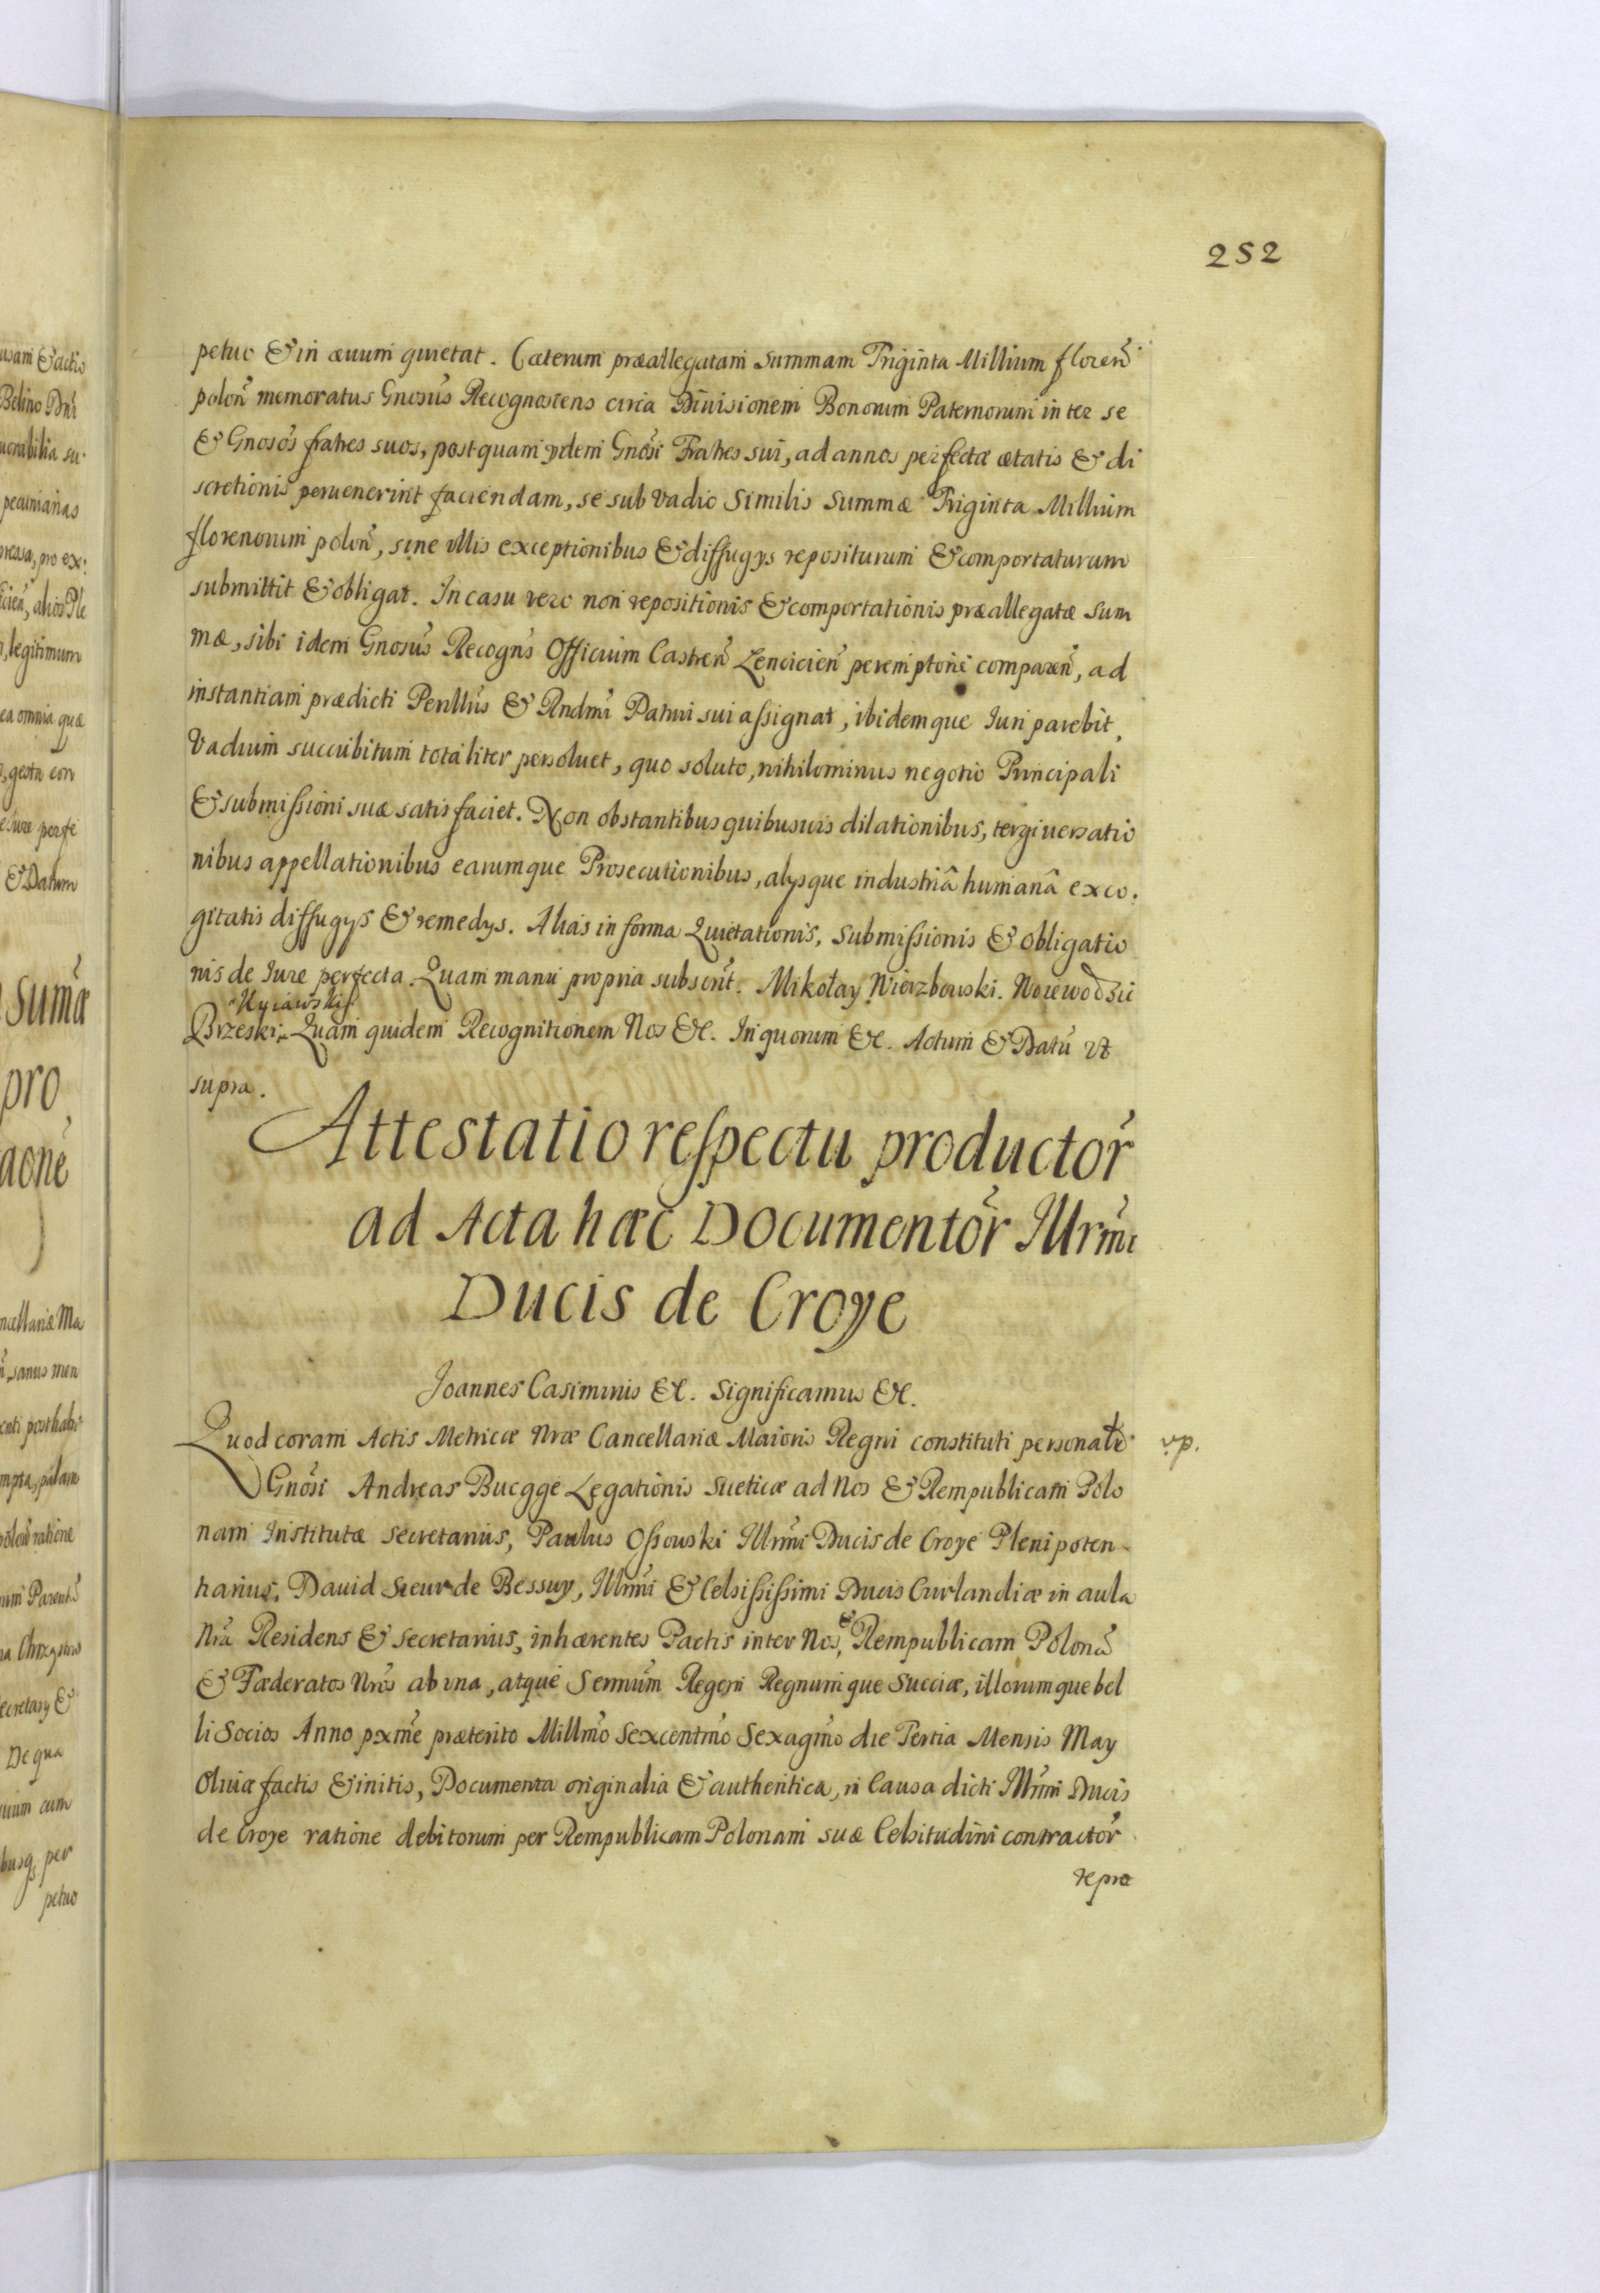 252
petuo & in æuum quietat. Cæterum præallegatam summam Triginta Millium floren̄
polon̄ memoratus Gnosūs Recognoscens circa Diuisionem Bonorum Paternorum inter se
& Gnosōs fratres suos, postquam ydem Gnōsi Fratres sui, ad annos perfectæ ætatis & di
scretionis peruenerint faciendam, se sub vadio similis summæ Triginta Millium
florenorum polon̄, sine vllis exceptionibus & diffugys repositurum & comportaturum
submittit & obligat. In casu vero non repositionis & comportationis præallegatæ sum
mæ, sibi idem Gnosūs Recogn̄s Officium Castren̄ Lencicien̄ peremptorie comparen̄, ad
instantiam prædicti Perillr̄is & Rndm̄i Patrui sui assignat, ibidemque Iuri parebit,
Vadium succubitum totaliter persoluet, quo soluto, nihilominus negotio Principali
& submissioni suæ satisfaciet. Non obstantibus quibusuis dilationibus, tergiuersatio
nibus appellationibus earumque Prosecutionibus, alysque industriâ humanâ exco.
gitatis diffugys & remedys. Alias in forma Quietationis, submissionis & obligatio
nis de Iure perfecta. Quam manu propria subscrīt. Mikołay Wierzbowski. Woiewodzic
Kuiawski
Brzeski Quam quidem Recognitionem Nos &c. In quorum &c. Actum & Datū vt
supra.
Attestatio respectu productor̄
ad Acta hæc Documentōr Illrm̄i
Ducis de Croye
Joannes Casimirus &c. Significamus &c.
Quod coram Actis Metricæ Nræ Cancellariæ Maioris Regni constituti personatr
vp.
Gnōsi Andreas Bucgge Legationis Sueticæ ad Nos & Rempublicam Polo
nam Institutæ secretarius, Paulus Ossowski Illrm̄i Ducis de Croye Plenipoten
tiarius, Dauid Sieur de Bessuy, Illrm̄i & Celsissimi Ducis Curlandiæ in aula
Nrā Residens & secretarius, inhærentes Pactis inter Nos, & Rempublicam Polonā
& Fæderatos Nrōs ab vna, atque Sermūm Regem Regnumque Sueciæ, illorumque bel
li Socios Anno pxm̄e præterito Millm̄o Sexcentm̄o Sexagm̄o die Tertia Mensis May
Oliuæ factis & initis, Documenta originalia & authentica, in Causa dicti Illrm̄i Ducis
de Croye ratione debitorum per Rempublicam Polonam suæ Celsitudini contractōr
repræ